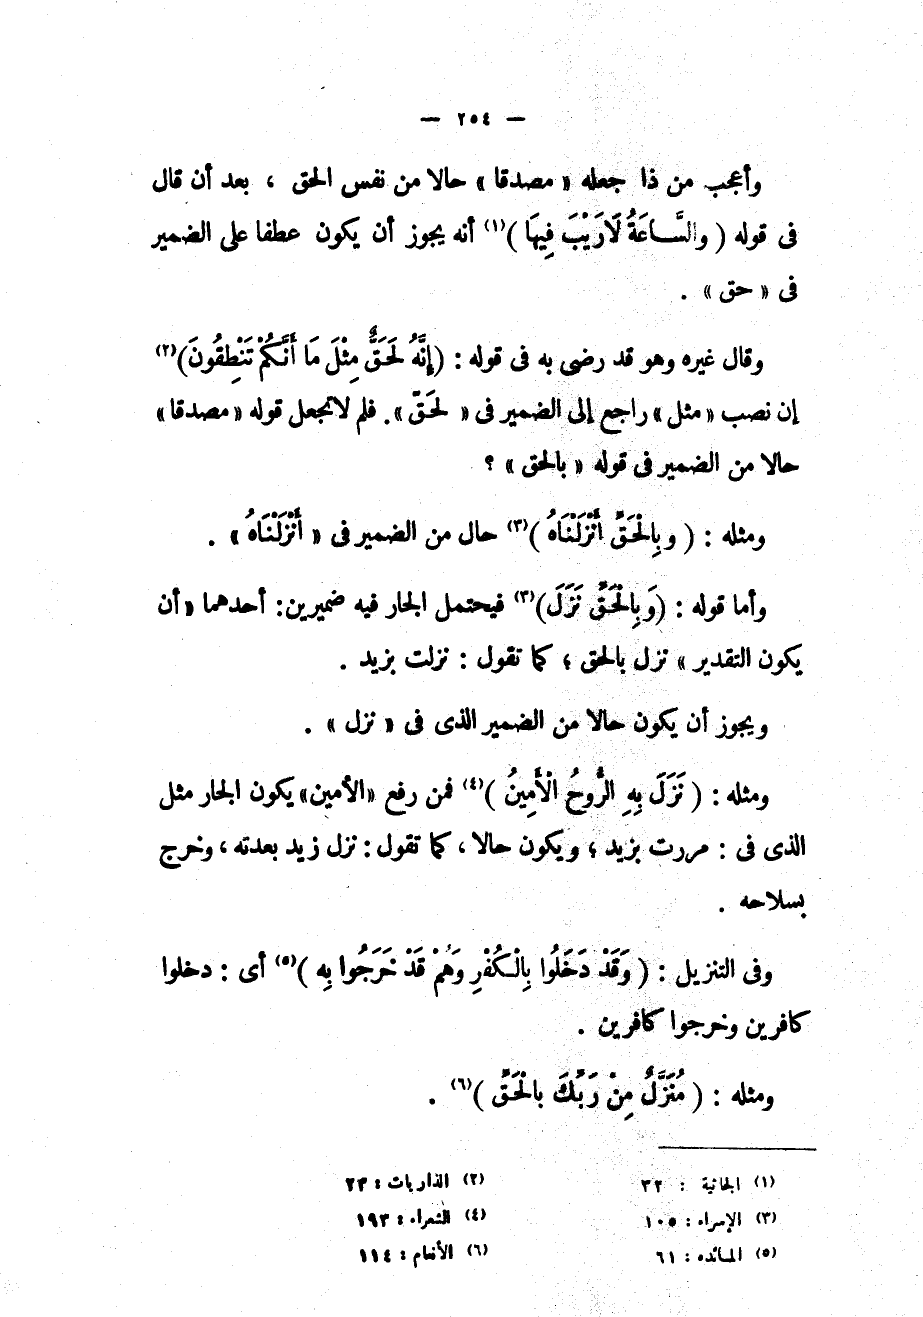 — ٢٥٤ —
وأعجب من ذا جعله « مصدقا » حالا من نفس الحق ، بعد أن قال
فى قوله ( والسَّاعَةُ لَارَيْبَ فِيهَا )(١) أنه يجوز أن يكون عطفا على الضمير
فى « حق » .
وقال غيره وهو قد رضى به فى قوله : (إِنَّهُ لَحَقٌّ مِثْلَ مَا أَنَّكُمْ تَنْطِقُونَ)(٢)
إن نصب « مثل » راجع إلى الضمير فى « لَحَقّ » . فلم لا نجعل قوله « مصدقا »
حالا من الضمير فى قوله « بالحق » ؟
ومثله : ( وبِالْحَقِّ أَنْزَلْنَاهُ )(٣) حال من الضمير فى « أَنْزَلْنَاهُ » .
وأما قوله : (وَبِالْحَقِّ نَزَلَ)(٣) فيحتمل الجار فيه ضميرين : أحدهما « أن
يكون التقدير » نزل بالحق ؛ كما تقول : نزلت بزيد .
ويجوز أن يكون حالا من الضمير الذى فى « نزل » .
ومثله : ( نَزَلَ بِهِ الرُّوحُ الْأَمِينُ )(٤) فمن رفع «الأمين» يكون الجار مثل
الذى فى : مررت بزيد ؛ ويكون حالا ، كما تقول : نزل زيد بعدته ، وخرج
بسلاحه .
وفى التنزيل : ( وَقَدْ دَخَلُوا بِالْكُفْرِ وَهُمْ قَدْ خَرَجُوا بِهِ )(٥) أى : دخلوا
كافرين وخرجوا كافرين .
ومثله : ( مُنَزَّلٌ مِنْ رَبِّكَ بالْحَقِّ )(٦) .
(١) الجاثية : ٣٢ (٢) الذاريات : ٢٣
(٣) الإسراء : ١٠٥ (٤) الشعراء : ١٩٣
(٥) المائده : ٦١ (٦) الأنعام : ١١٤